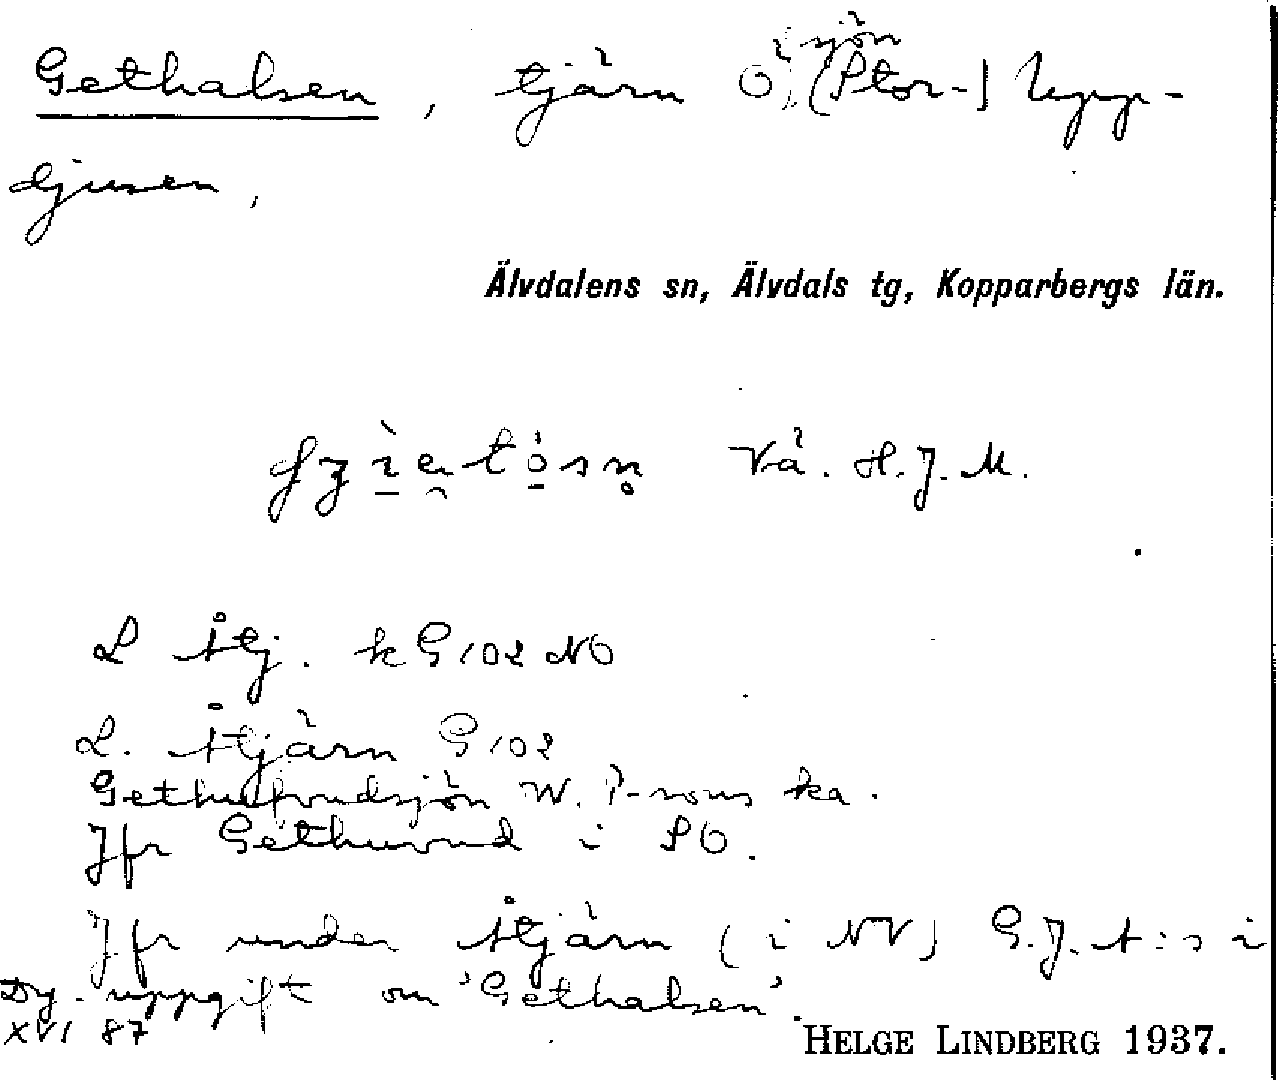 Gethalsen, tjärn Ö, (Stor-) Upp-
i sjön
ljusen,
Älvdalens sn, Älvdals tg, Kopparbergs län.
Vå. H.J.M.
L Åtj. k G102 NO
L. Åtjärn G102
Gethuvudsjön W. ka.
Jfr Gethuvud i SO.
Jfr under Åtjärn (i NV) G.J. A:s i
Dy. uppgift om 'Gethalsen'.
XVI 87
HELGE LINDBERG 1937.